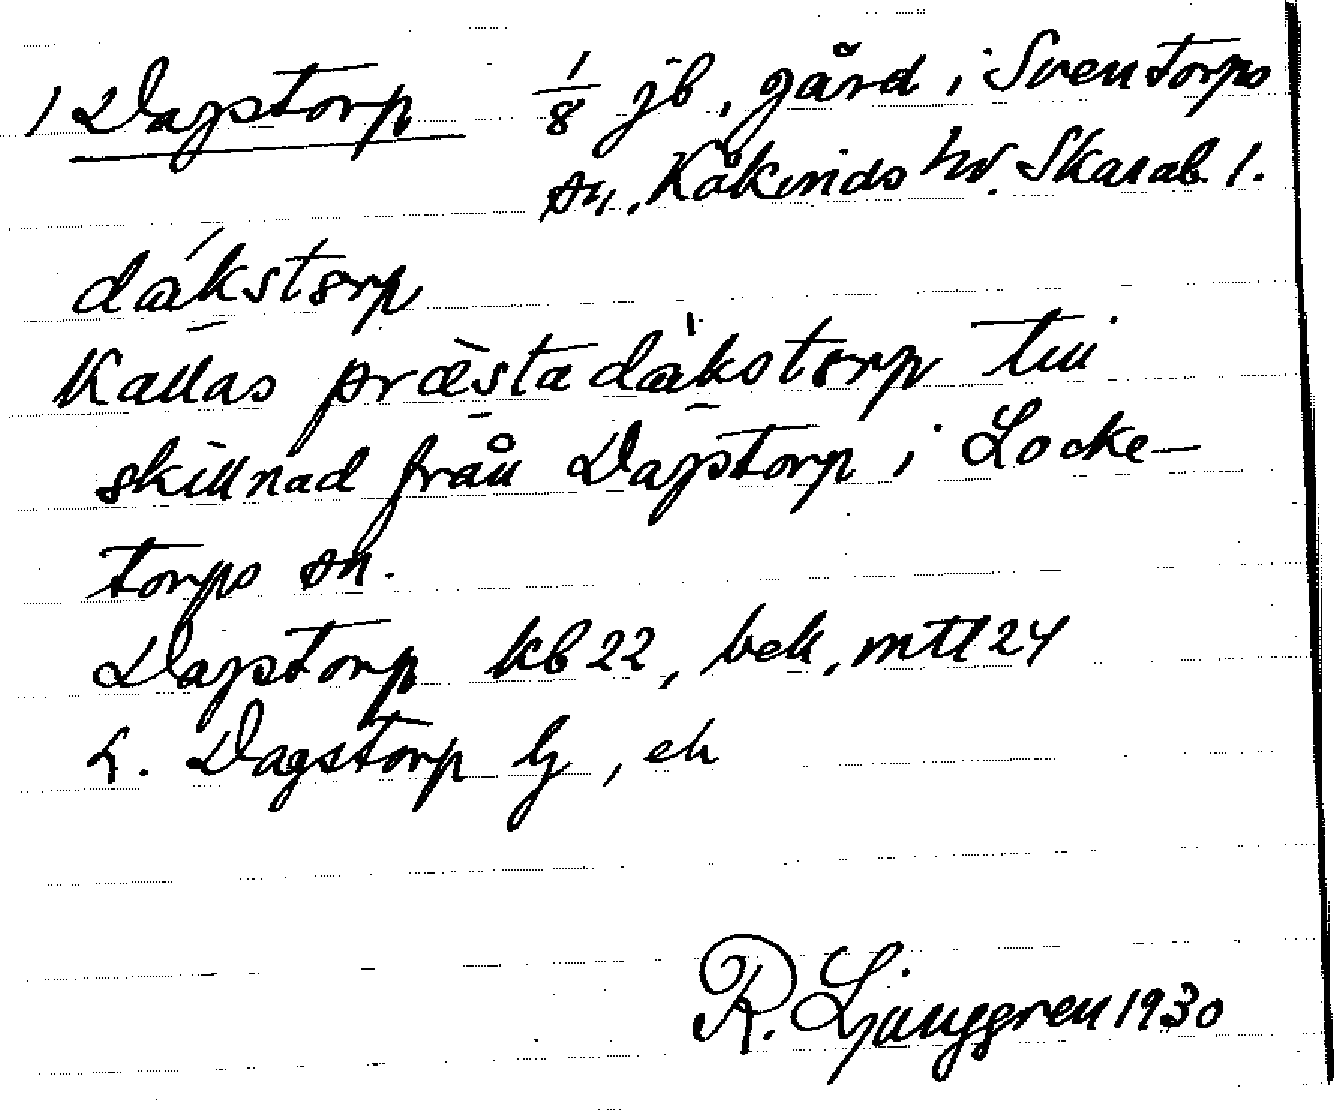 1 Dagstorp 1/8 jb, gård i Sventorps
sn, Kåkinds hd. Skarab l.
dákstorp
Kallas præ̀stadàkstorp till
skillnad från Dagstorp i Locke-
torps sn.
Dagstorp kb 22, bek, mtl 24
L. Dagstorp lj, ek
R. Ljunggren 1930